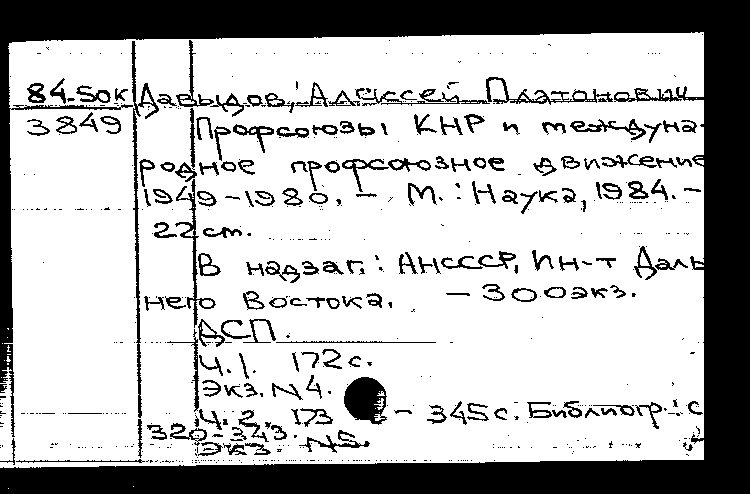 84-50К Давыдов, Алексей Платонович
3849 Профсоюзы КНР и междуна-
родное профсоюзное движение
1949-1980. - М.: Наука, 1984. -
22 см.
В надзаг.: АНСССР, Ин-т Даль
него Востока. - 300экз.
ДСП.
Ч.1. 172 с.
Экз. N4.
Ч.2. 173 - 345 с. Библиогр.: с
320-343.
Экз. N5.